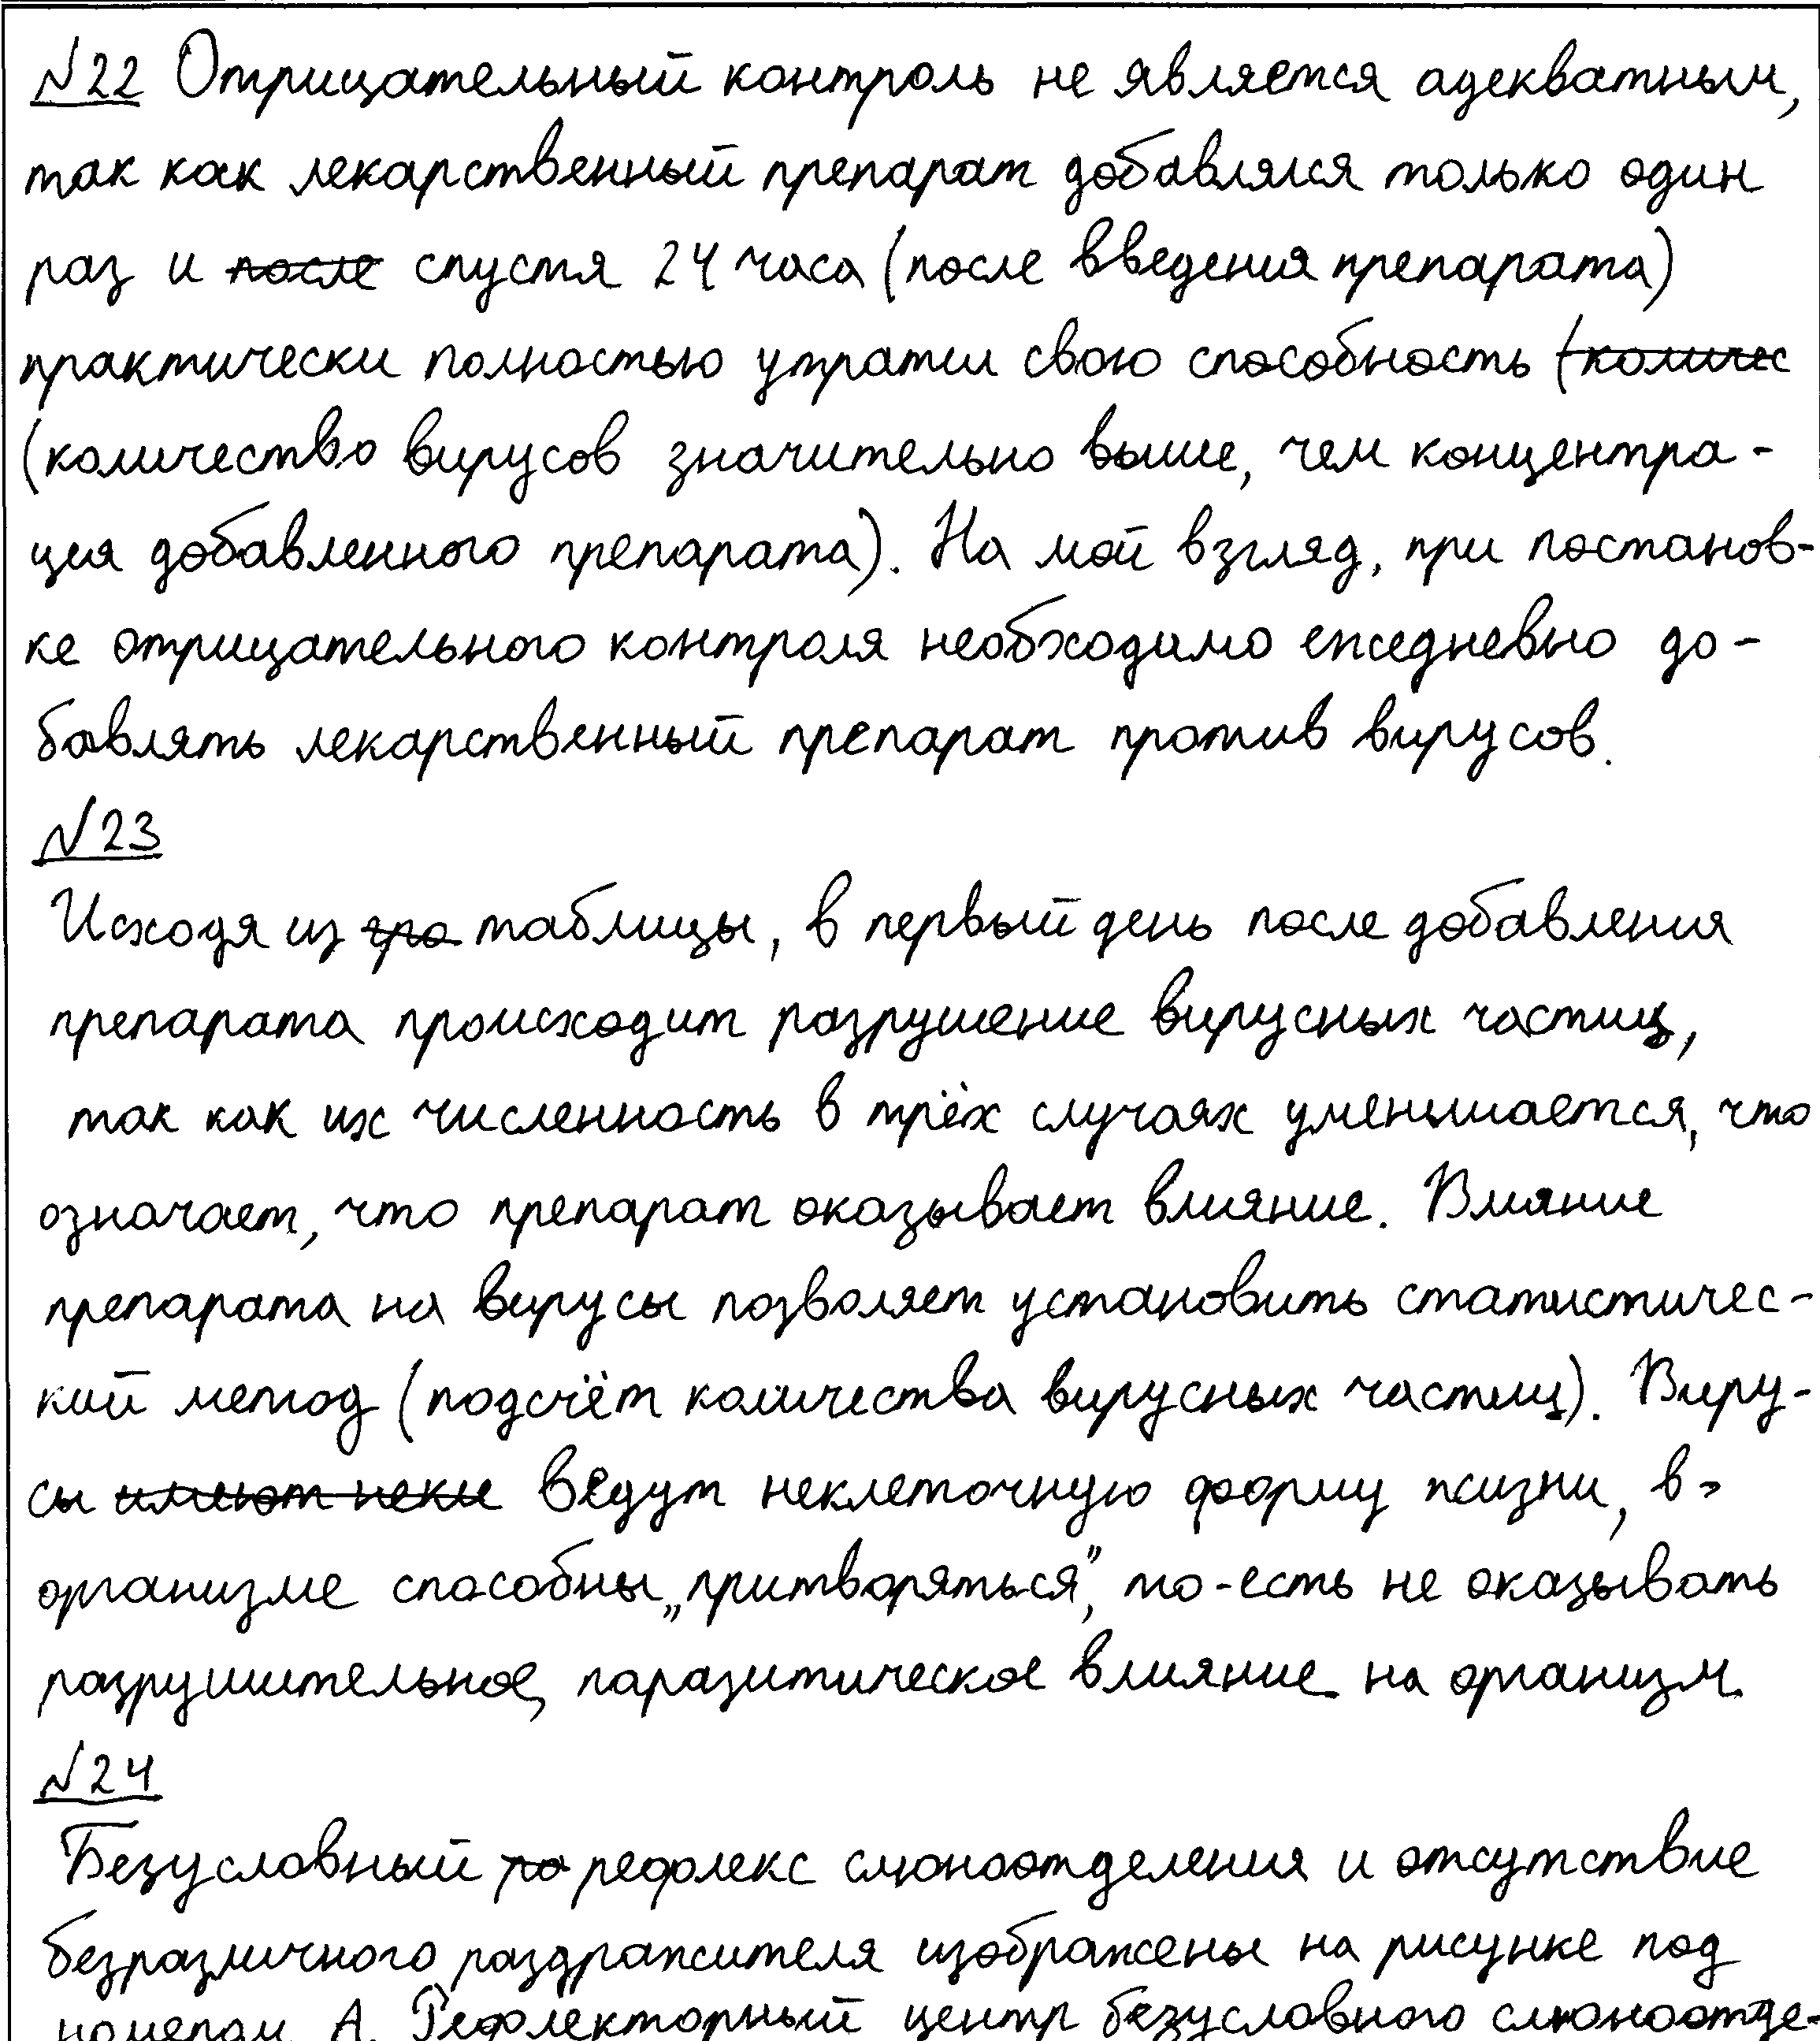 №22 Отрицательный контроль не является адекватным,
так как лекарственный препарат добавлялся только один
раз и после спустя 24 часа (после введения препарата)
практически полностью утратил свою способность (количес
(количество вирусов значительно выше, чем концентра-
ция добавленного препарата). На мой взгляд, при постанов-
ке отрицательного контроля необходимо ежедневно до-
бавлять лекарственный препарат против вирусов.
№23
Исходя из гра таблицы, в первый день после добавления
препарата происходит разрушение вирусных частиц,
так как их численность в трёх случаях уменьшается, что
означает, что препарат оказывает влияние. Влияние
препарата на вирусы позволяет установить статистичес-
кий метод (подсчёт количества вирусных частиц). Виру-
сы имеют некле ведут неклеточную форму жизни, в
организме способны „притворяться", то-есть не оказывать
разрушительное, паразитическое влияние на организм.
№24
Безусловный ра рефлекс слюноотделения и отсутствие
безразличного раздражителя изображены на рисунке под
номером А. Рефлекторный центр безусловного слюноотде-